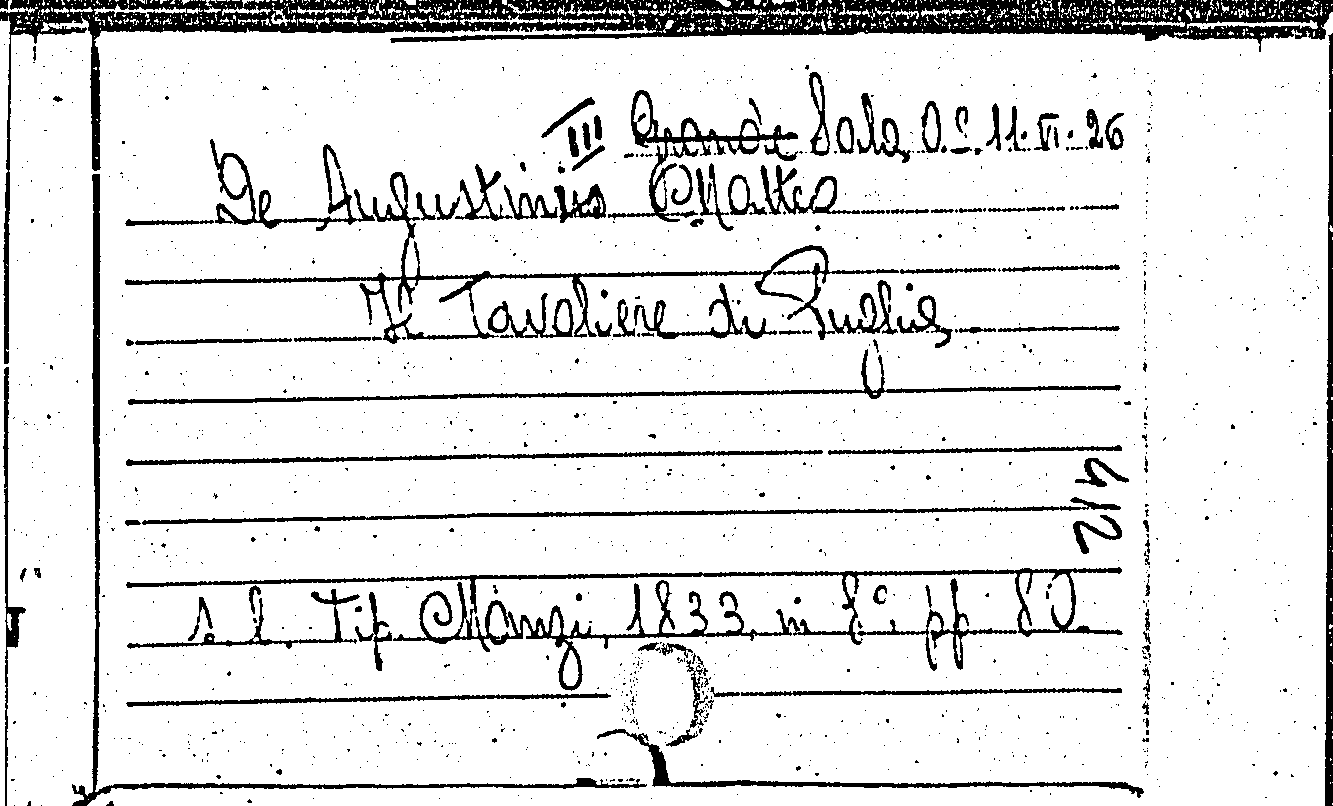 III Grande Sala, O.S. 11. VI. 26
De Augustiniis Matteo
Il Tavoliere di Puglia
412
s. l. Tip. Manzi, 1833, in 8°, pp. 80.